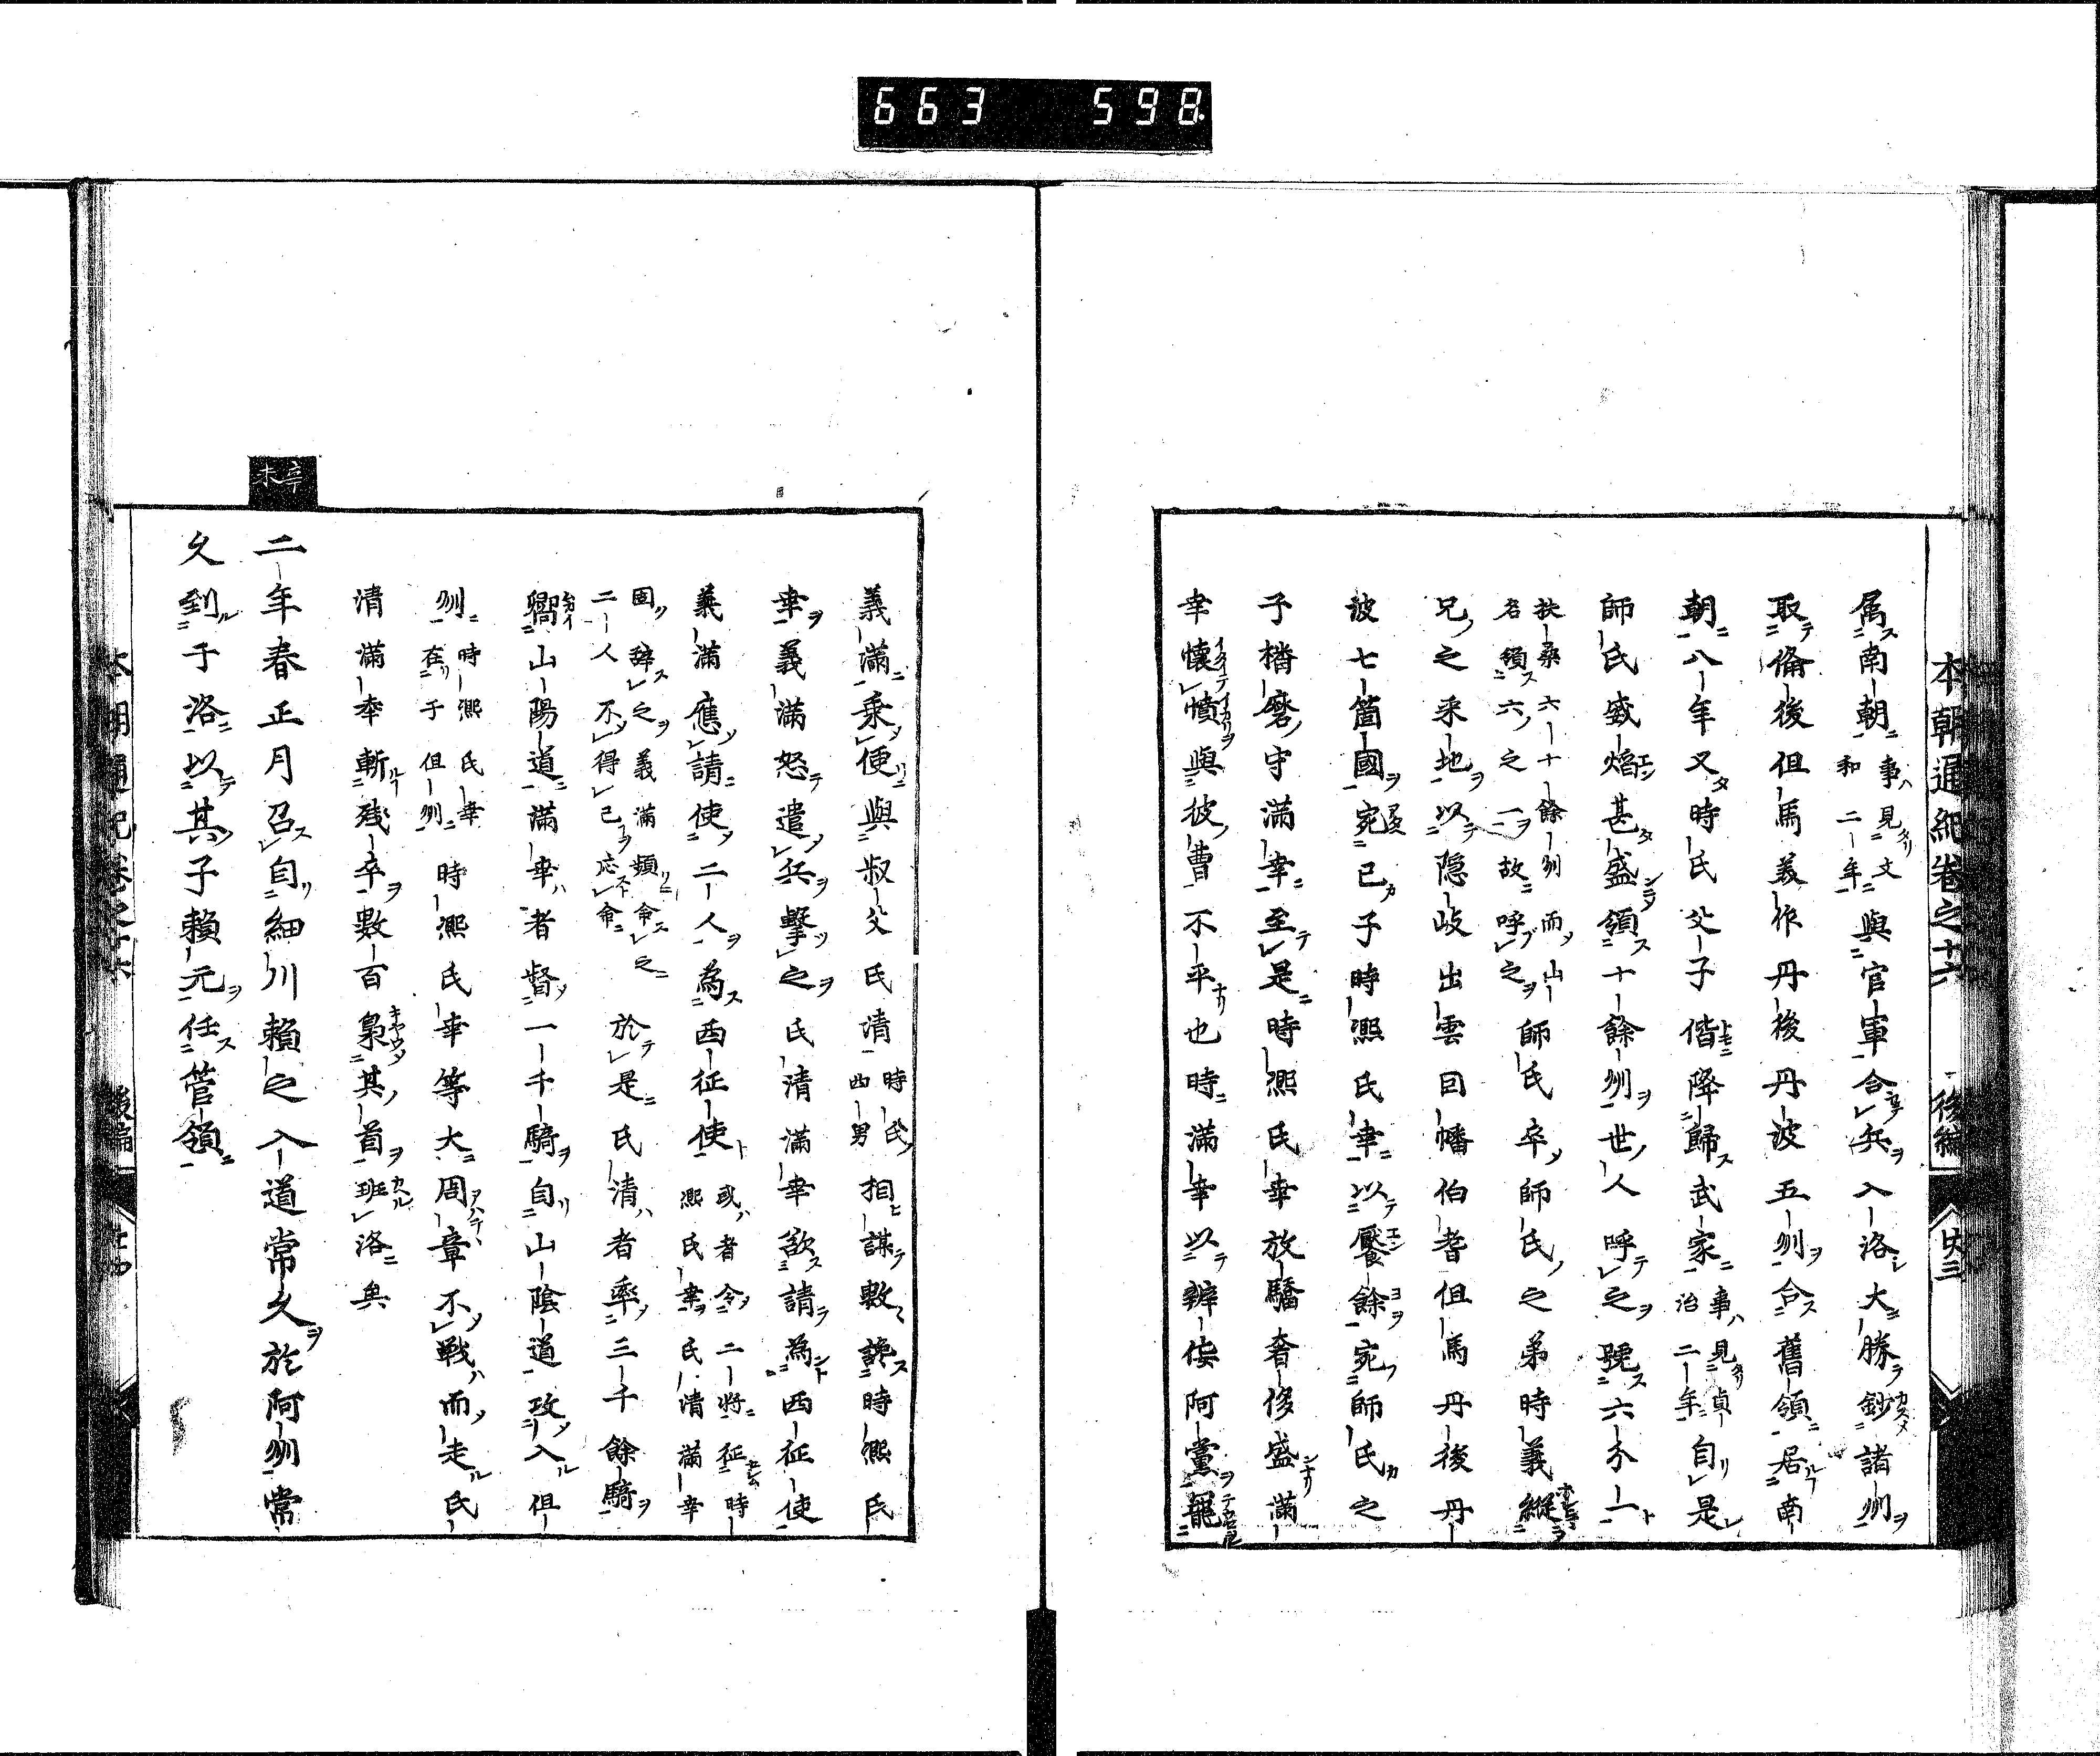 663 598
本朝通紀卷之十六 後編 廿三
属南朝事見文和二年與官軍合兵入洛大勝鈔諸州
取備後但馬美作丹後丹波五州合舊領居南
朝八年又時氏父子偕降歸武家事見貞治二年自是
師氏威焰甚盛領十餘州世人呼之號六分一
扶桑六十餘州而山名領六之一故呼之師氏卒師氏之弟時義縱
兄之采地以隠岐出雲因幡伯耆但馬丹後丹
波七箇國宛已子時熈氏幸以饜餘宛師氏之
子播磨守滿幸至是時熈氏幸放驕奢侈盛滿
幸懐憤與彼曹不平也時滿幸以辨侫阿黨寵
義滿乗便與叔父氏清時氏四男相謀數讒時熈氏
幸義滿怒遣兵擊之氏清滿幸欲請為西征使
義滿應請使二人為西征使或者令二將征時熈氏幸氏清滿幸
固辞之義滿頻命之二人不得已応命於是氏清者率三千餘騎
嚮山陽道滿幸者督一千騎自山陰道攻入但
州時熈氏幸在于但州時熈氏幸等大周章不戰而走氏
清滿幸斬殘卒數百梟其首班洛矣
丁未
二年春正月召自細川頼之入道常久於阿州常
久到于洛以其子頼元任管領
本朝通紀卷之十六 後編 廿四